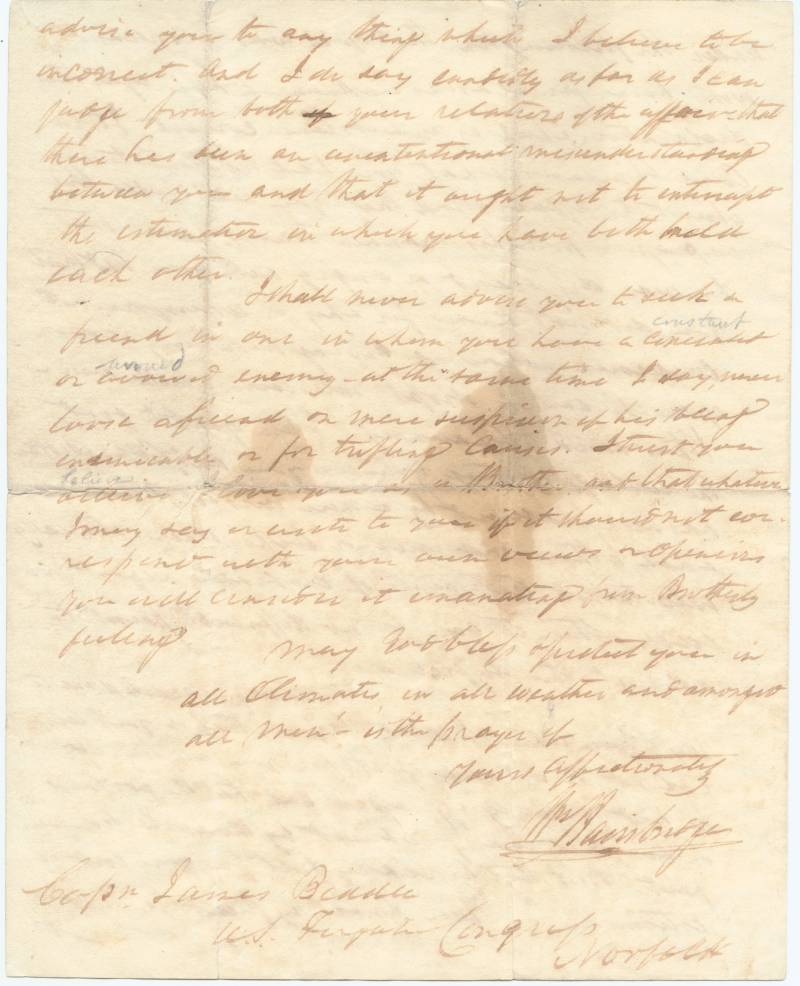 advise you to any thing which I believe to be
incorrect. And I do say candidly as far as I can
judge from both of your relations of the affair that
there has been an unintentional misunderstanding
between you and that it ought not to interrupt
the estimation in which you have both held
each other.
I shall never advise you to seek a
friend in one in whom you have a
constant
avowed
or avowed enemy - at the same time I say never
loose a friend on mere suspicion of his being
inimicable or for trifling Causes. I trust you
believe
I love you as a Brother and that whatever
I may say or write to you if it should not cor-
respond with your own views or opinions
you will consider it emanating from Brotherly
feeling
May God bless & protect you in
all Climates in all weather and amongst
all Men - is the prayer of
Yours affectionately
Wm Bainbridge
Capn. James Biddle
U.S. Frigate Congress
Norfolk